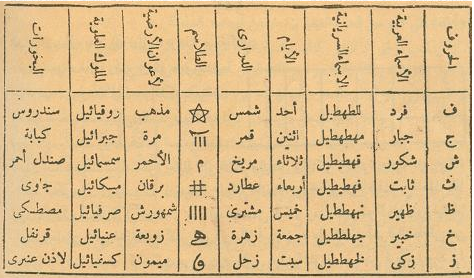 الحروف الأسماء العربية الاسماء السريانية الأيام الدرارى الطلاسم لأعوان الأرضية الملوك العلوية البخورات
ف فرد للطهطيل أحد شمس مذهب روقيائيل سندروس
ج جبار مهطهطيل اثنين قمر مرة جبرائيل كبابة
ش شكور قهطيطيل ثلاثاء مريخ م الأحمر سمسمائيل صندل أحمر
ث ثابت فهطيطيل أربعاء عطارد # برقان ميكائيل جاوى
ظ ظهير نهططيل خميس مشترى |||| شمهورش صرفيائيل مصطكى
خ خبير جهلططيل جمعة زهرة زوبعة عنيائيل قرنفل
ز زكى لخهططيل سبت زحل ميمون كسفيائيل لاذن عنبرى